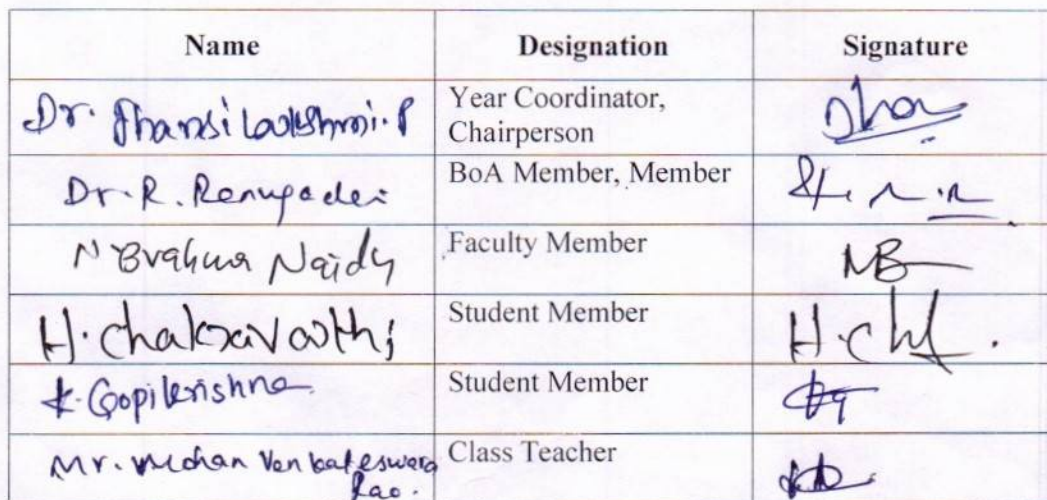 Name Designation Signature
Dr. Jhansi Lakshmi. P Year Coordinator,
Chairperson
Dr. R. Renugadevi BoA Member, Member
N Brahma Naidu Faculty Member NB
H. Chakravarthi Student Member H. Ch
K. Gopikrishna Student Member
Mr. Mohan Venkateswara Class Teacher
Rao.